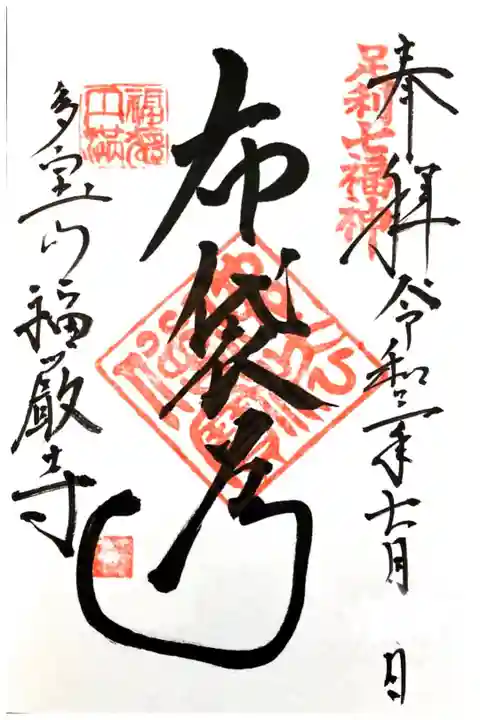 足利七福神
奉拝 令和二年 月 日
布袋尊
福徳円満
多宝山 福厳寺